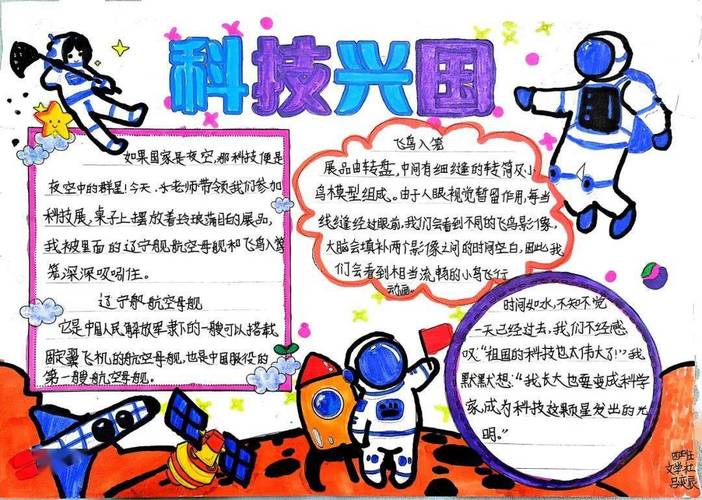 科技兴国
如果国家是夜空,那科技便是
夜空中的群星!今天,水老师带领我们参加
科技展,桌子上摆放着玲琅荡目的展品,
我被里面的辽宁舰航空母舰和飞鸟入笼
笼深深吸引住。
辽宁舰航空母舰
它是中国人民解放军隶下的一艘可以搭载
固定翼飞机的航空母舰,也是中国服役的
第一艘航空母舰。
飞鸟入笼
展品由转盘,中间有细缝的转筒及小
鸟模型组成。由于人眼视觉暂留作用,每当
线缝经过眼前,我们会看到不同的飞鸟影像,
大脑会填补两个影像之间的时间空白,因此我
们会看到相当流畅的小鸟飞行
动画。
时间如水,不知不觉
一天已经过去,我们不经感
叹:“祖国的科技也太伟大了!”我
默默想:“我长大也要变成科学
家,成为科技这颗星发出的光
明。”
文学社